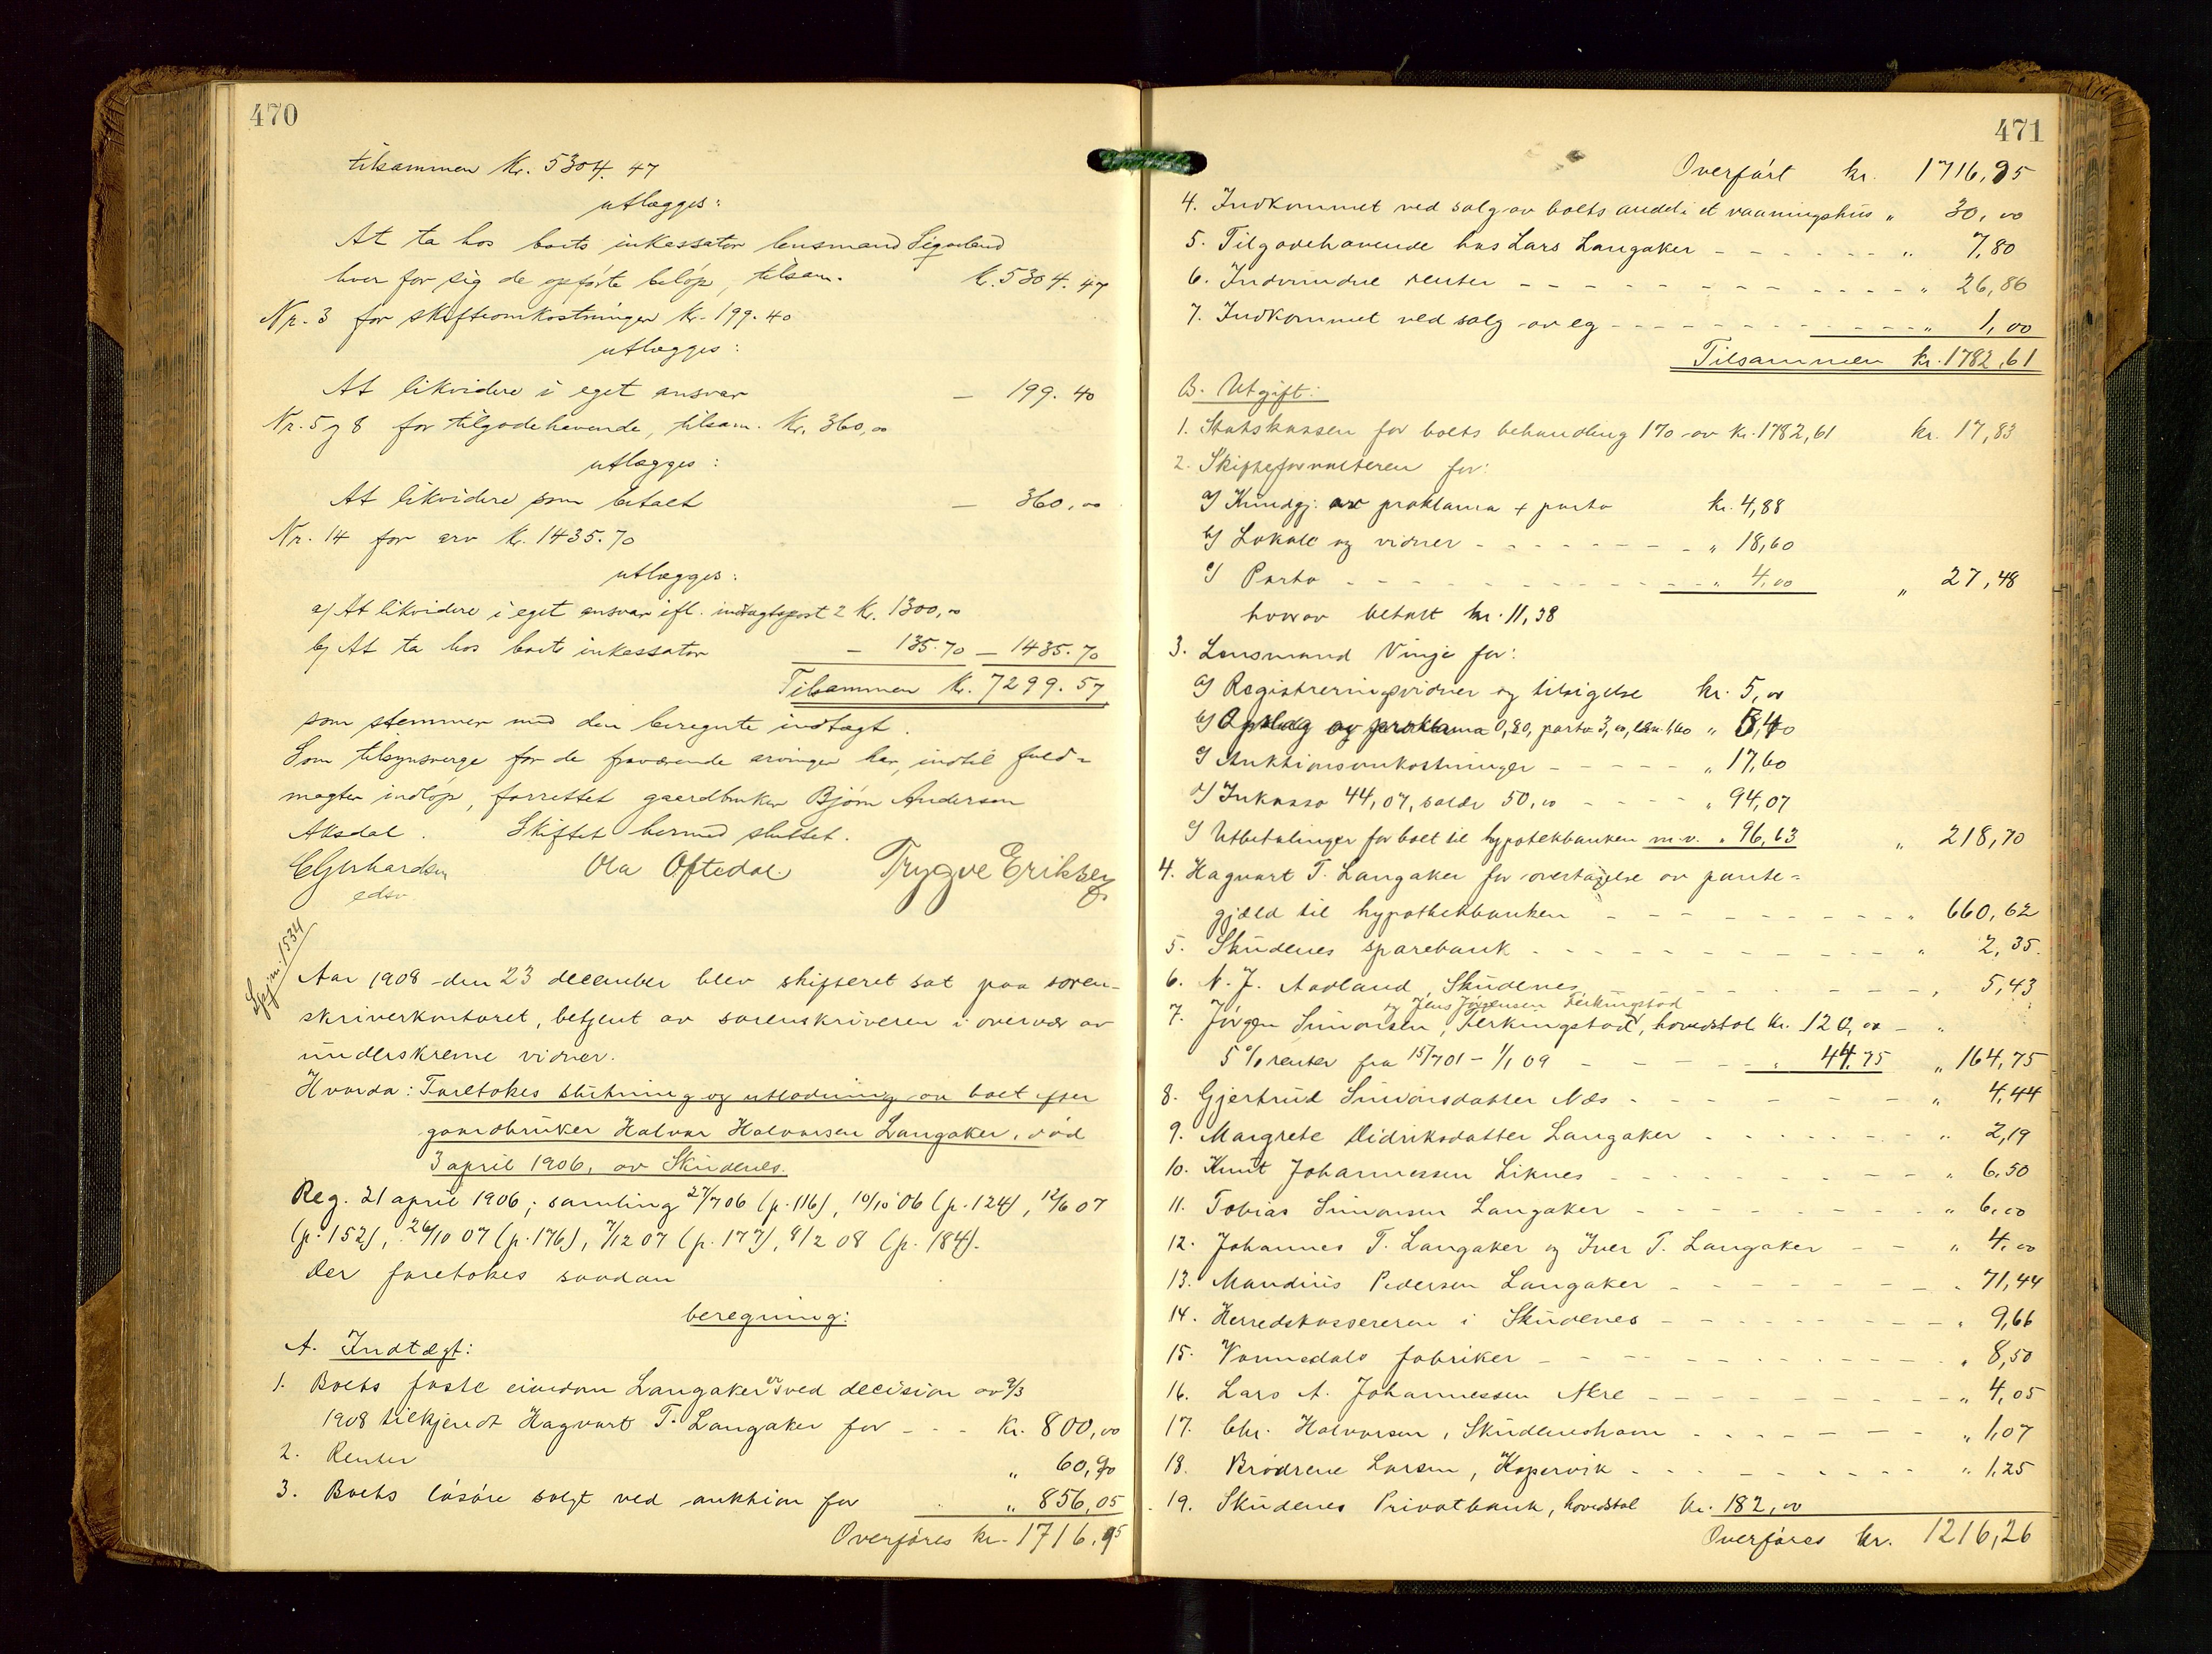 470
tilsammen Kr. 5304.47
utlægges:
At ta hos boets inkassator lensmand
hver for sig de opførte beløp, tilsam. Kr. 5304.47
Nr. 3 for skifteomkostninger Kr. 199.40
utlægges:
At likvidere i eget ansvar — 199.40
Nr. 5 og 8 for tilgodehavende, tilsam. Kr. 360,00
utlægges:
At likvidere som betalt — 360,00
Nr. 14 for arv Kr. 1435.70
utlægges:
a) At likvidere i eget ansvar ifl. indtægtspost 2 Kr. 1300,00
b) At ta hos boets inkassator — 135.70 — 1435.70
Tilsammen Kr. 7299.57
som stemmer med den beregnte indtægt.
Som tilsynsverge for de fraværende arvinger har, indtil fuld-
magter indløp, forrettet gaardbruker Bjørn Andersen
Aksdal. Skiftet hermed sluttet.
EGerhardsen Ola Oftedal Trygve Eriksen
edsv
1534
Aar 1908 den 23 december blev skifteret sat paa soren-
skriverkontoret, betjent av sorenskriveren i overvær av
underskrevne vidner.
Hvorda: Foretokes slutning og utlodning av boet efter
gaardbruker Halvar Halvorsen Langaker, død
3 april 1906, av Skudenes.
Reg. 21 april 1906; samling 27/7 06 (p. 116), 10/10 06 (p. 124), 12/6 07
(p. 152), 26/10 07 (p. 176), 7/12 07 (p. 177), 8/2 08 (p. 184).
Der foretokes saadan
beregning:
A. Indtægt:
1. Boets faste eiendom Langaker er ved decision av 9/3
1908 tilkjendt Hagvart T. Langaker for - - - kr. 800,00
2. Renter " 60,90
3. Boets løsøre solgt ved auktion for " 856,05
Overføres kr. 1716,95
471
Overført kr. 1716,95
4. Indkommet ved salg av boets andel i et vaaningshus " 30,00
5. Tilgodehavende hos Lars Langaker - - - - - - " 7,80
6. Indvundne renter - - - - - - - - - - " 26,86
7. Indkommet ved salg av eg - - - - - - - - " 1,00
Tilsammen kr. 1782,61
B. Utgift:
1. Statskassen for boets behandling 1% av kr. 1782,61 kr. 17,83
2. Skifteforvalteren for:
a) Kundgj. av proklama + porto kr. 4,88
b) Lokale og vidner - - - - - - - " 18,60
c) Porto - - - - - - - - - - " 4,00 " 27,48
hvorav betalt kr. 11,38
3. Lensmand Vinje for:
a) Registreringsvidner og tilsigelse kr. 5,00
b) Opslag av proklama 0,80, porto 3,00, 1,60 " 5,40
c) Auktionsomkostninger - - - - - " 17,60
d) Inkasso 44,07, salær 50,00 - - - - " 94,07
e) Utbetalinger for boet til hypotekbanken m.v. " 96,63 " 218,70
4. Hagvart T. Langaker for overtagelse av pante-
gjæld til hypothekbanken - - - - - - - - - " 660,62
5. Skudenes sparebank - - - - - - - - - - " 2,35
6. N. J. Aadland, Skudenes - - - - - - - - , 5,43
og Jens Jørgensen Ferkingstad
7. Jørgen Simonsen, Ferkingstad, hovedstol kr. 120,00 - "
5% renter fra 15/7 01 - 1/1 09 - - - - - " 44,75 " 164,75
8. Gjertrud Simonsdatter Næs - - - - - - - " 4,44
9. Margrete Didriksdatter Langaker - - - - - - - " 2,19
10. Knut Johannessen Liknes - - - - - - - - " 6,50
11. Tobias Simonsen Langaker - - - - - - - - " 6,00
12. Johannes T. Langaker og Iver T. Langaker - - " 4,00
13. Maudius Pedersen Langaker - - - - - - - - 71,44
14. Herredskassereren i Skudenes - - - - - - - " 9,66
15. Vormedals fabriker - - - - - - - - - - " 8,50
16. Lars A. Johannessen Akre - - - - - - - - " 4,05
17. Chr. Halvorsen, Skudeneshavn - - - - - - - " 1,07
18. Brødrene Larsen, Kopervik - - - - - - - - " 1,25
19. Skudenes Privatbank, hovedstol kr. 182,00
Overføres kr. 1216,26